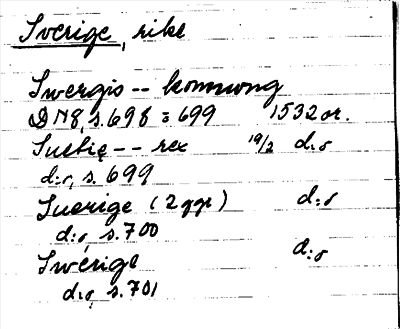 Sverige, rike
Swergis -- konnwng
DN8, s. 698 o 699 1532 or.
Suetię -- rex 19/2 d:o
d:o, s. 699
Suerige (2 ggr) d:o
d:o, s. 700
Swerige d:o
d:o, s. 701